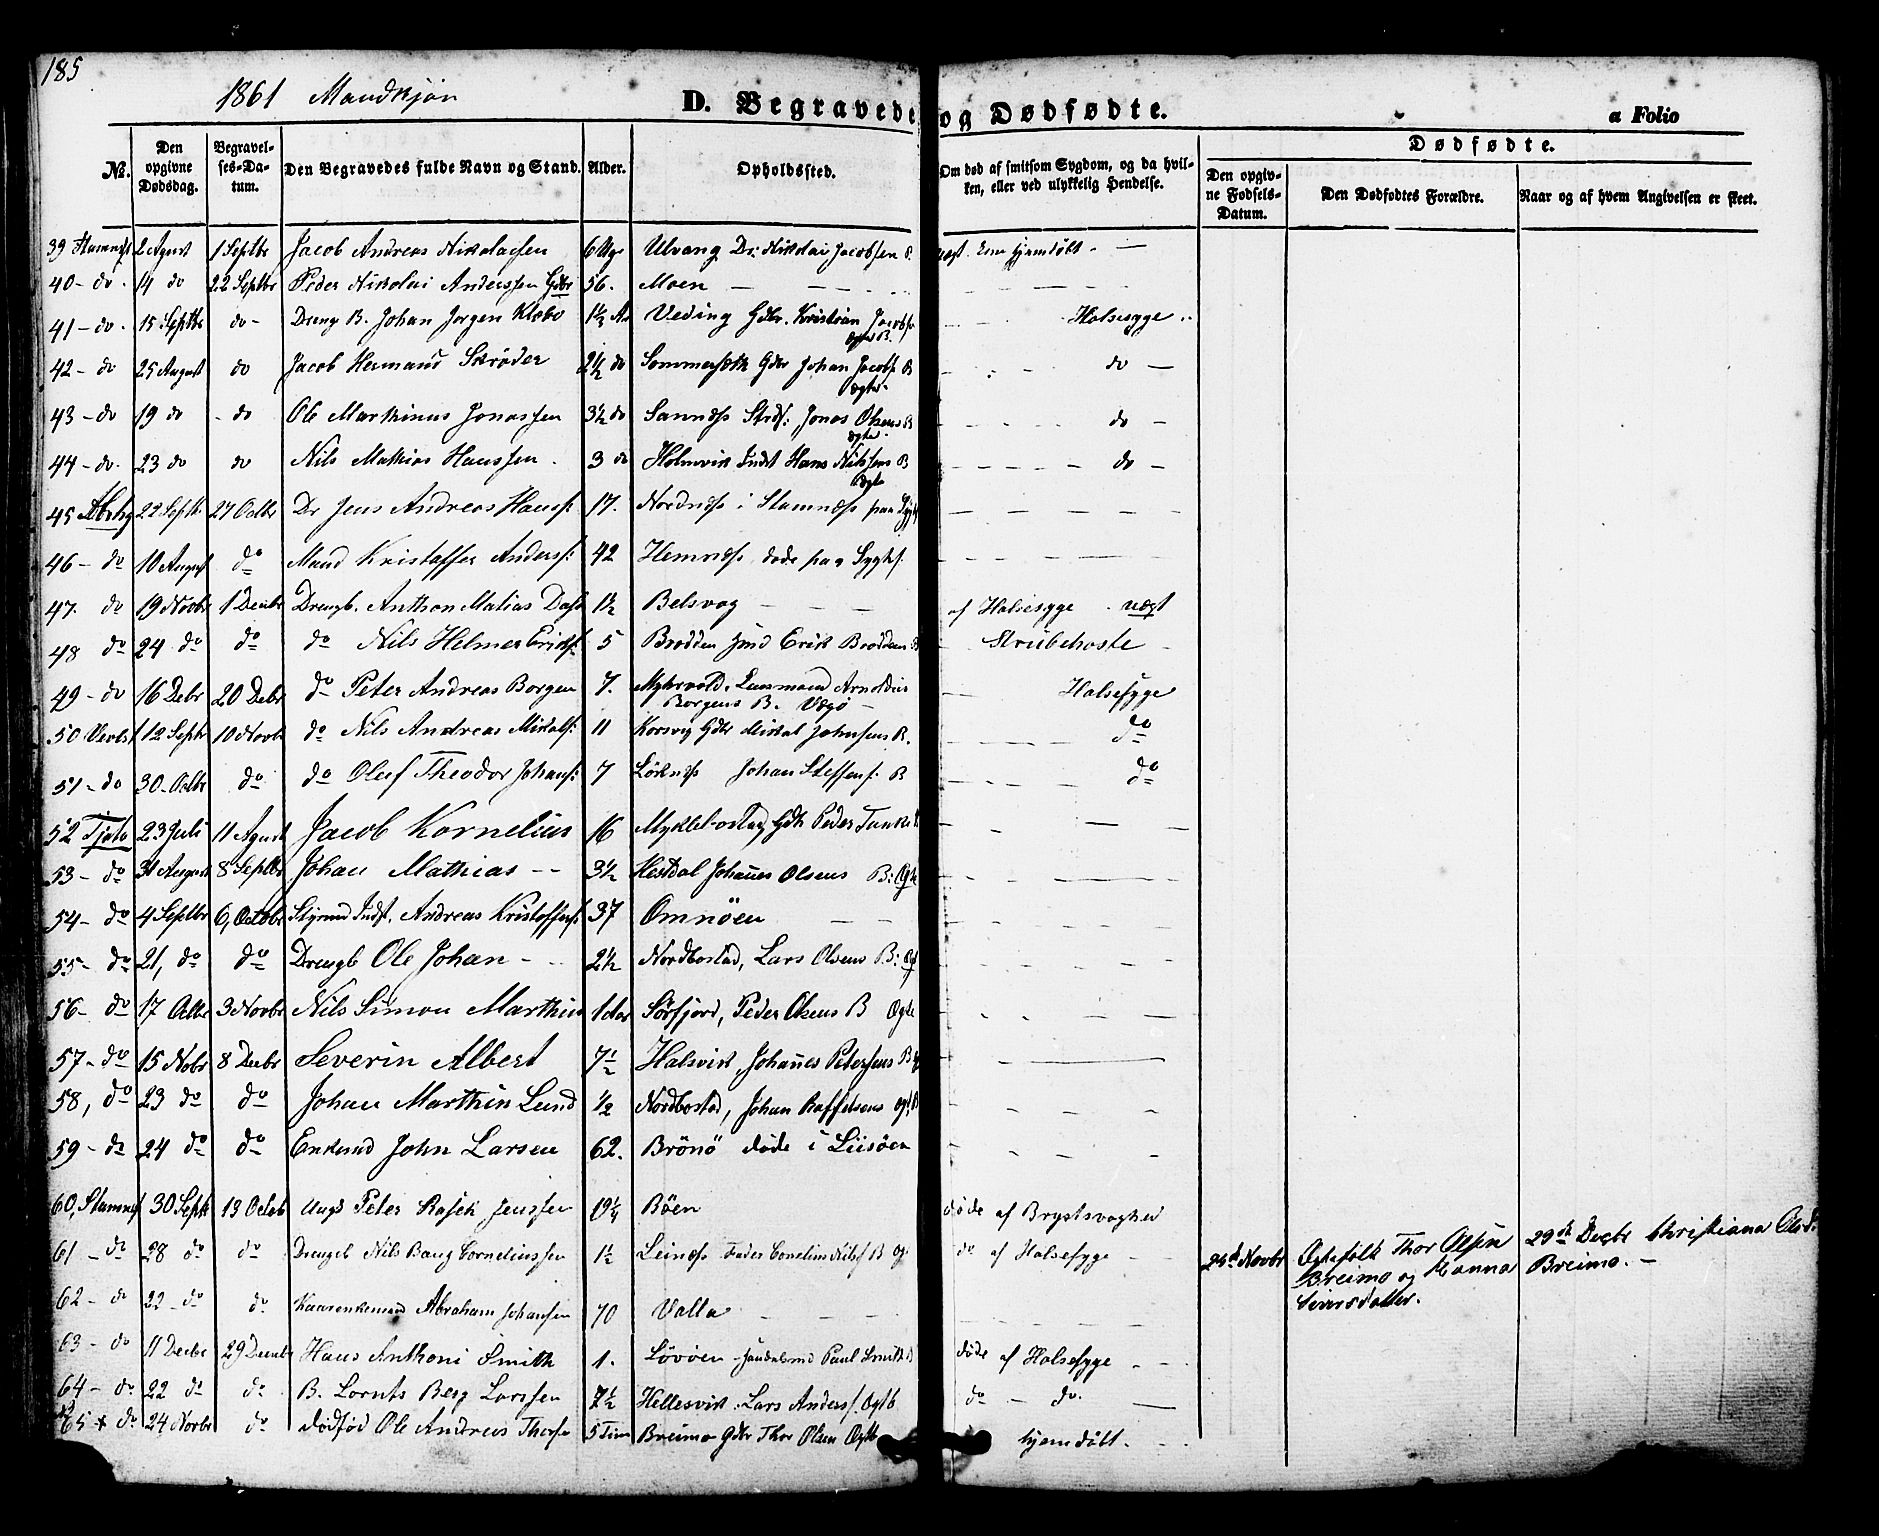 185
1861 Mandkjøn
D. Begravede og Dødfødte.
a Folio
Dødfødte.
No. Den opgivne Dødsdag. Begravelses-Datum. Den Begravedes fulde Navn og Stand. Alder. Opholdssted. Om død af smitsom Sygdom, og da hvilken, eller ved ulykkelig Hendelse. Den opgivne Fødsels-Datum. Den Dødfødtes Forældre. Naar og af hvem Angivelsen er skeet.
39 2 August 1 Septbr Jacob Andreas Nikolaisen 6 Uger Ulvang Dr: Nikolai Jacobsen hjemdøbt
40 - do 14 do 22 Septbr Peder Nikolai Anderssen Gdbr 56. Moen
41 - do 15 Septbr do - Dreng B. Johan Jørgen Klæbo 1½ Veding Gdbr. Kristian Jacobs B. Halsesyge
42 - do 25 August do Jacob Hermand Skrøder 2½ do Gdbr Johan Jacobs B ægte do
43 - do 19 do - do Ole Marthinus Jonassen 3½ do Sannæss Jonas Olsens B ægte do
44 - do 23 do do Nils Mathias Hanssen 3 do Holmvik Indst Hans Nilssens B ægte do
45 22 Septb 27 Octbr Dr Jens Andreas Hanss: 17. Nordnæss i Stamnæss
46 - do 10 August do Mand Kristoffer Anderss: 42 Hemnæss døde paa
47. do 19 Novbr 1 Decbr Drengb. Anthon Matias 1½ Belsvag af Halsesyge uægt
48 do 24 do do do Nils Helmer Eriks: 5 Brodden Ind Erik Brodden Strubehoste
49 - do 16 Debr 20 Debr do Peter Andreas Borgen 7. Lensmand Arnoldus Halsesyge
Borgens B. Vægø
50 12 Septbr 10 Novbr do Nils Andreas Mikals: 11 Korsvig Gdbr Mikal Johnsens B. do
51 - do 30 Octbr do do Oluf Theodor Johans: 7 Johan Steffens: B do
52 Tjøtø 23 Juli 11 Agust Jacob Kornelius 16 Peder
53 - do 31 August 8 Septbr Johan Mathias 3½ Hestdal Johannes Olsens B: Ægte
54 - do 4 Septbr 6, October Indst. Andreas Kristoffers: 37 Omnöen
55 - do 21, do do Drengb Ole Johan 2½ Nordbostad, Lars Olsens B:
56 - do 17 Octbr 3 Novbr Nils Simon Marthin 1 Aar Sörfjord, Peder Olsens B Ægte
57 - do 15 Nobr 8 Decbr Severin Albert 7½ Halsvik, Johannes Petersens B
58, do 23 do do Johan Marthin Lund ½ Nordbostad, Johan Raffelsens
59 - do 24 do do Enkmd John Larsen 62. Brönö döde i
60, 30 Septb 13 Octob Ungk Peter Jenssen 19¼ Böen döde af Brystsvaghed
61 - do 28 do do Drengeb Nils Bang Cornelinssen 1½ Leinæs do af Halsesyge
25de Novbr Ægtefolk Thor Olsen 29de Decbr Christiana
Breimo og Hanna Breimo.
Siversdatter.
62 - do 22 - do do Abraham Johansen 70 Valla
63 - do 11 Decbr 29 Decmb Hans Anthoni Smith 1. Lövöen Paul Smith döde af Halsesyge
64 - do 22 do do B. Lornts Berg Larssen 7½ Hellesvik Lars Anderss. Ægtb do - do.
65 do 24 Novbr do dödföd Ole Andreas Thorsen 5 Timer Breimo Gdbr Thor Olsen Ægtb hjemdöbt.